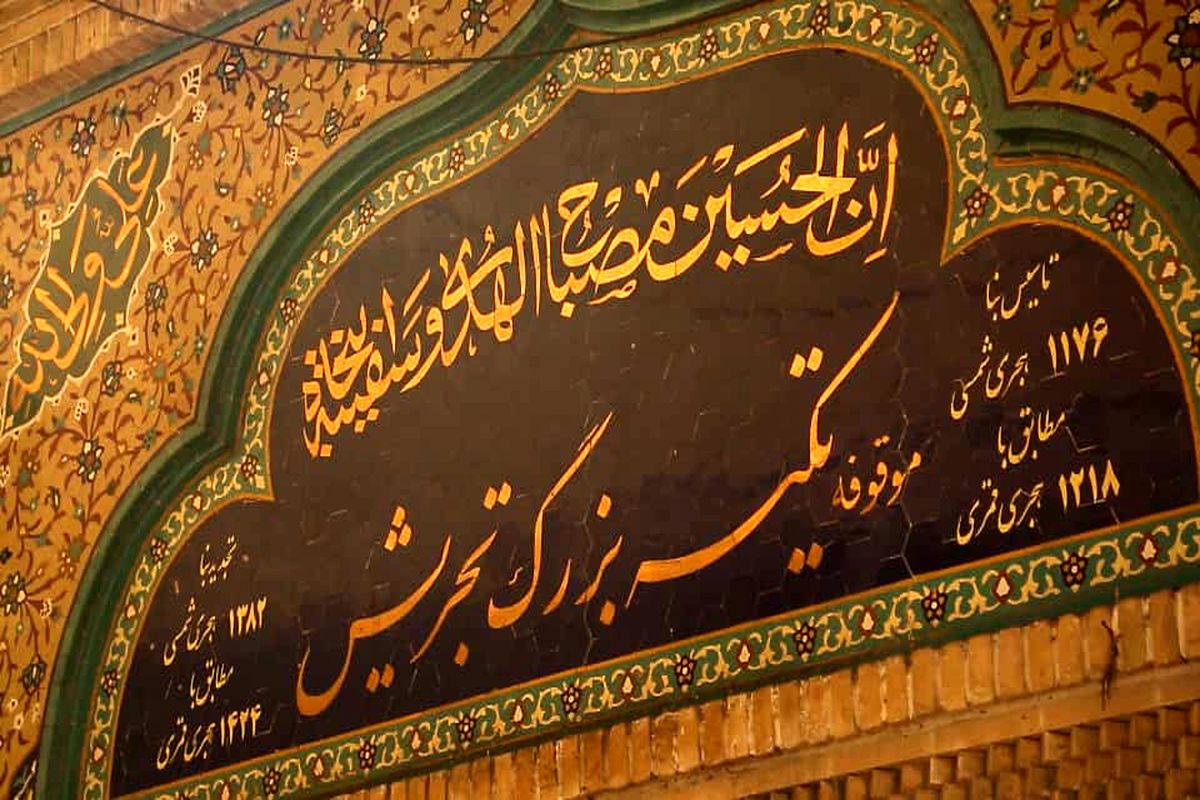 ان الحسین مصباح الهدی و سفینة النجاة
موقوفه تکیه بزرگ تجریش
تاسیس بنا
۱۱۷۶ هجری شمسی
مطابق با
۱۲۱۸ هجری قمری
تجدید بنا
۱۳۸۲ هجری شمسی
مطابق با
۱۴۲۴ هجری قمری